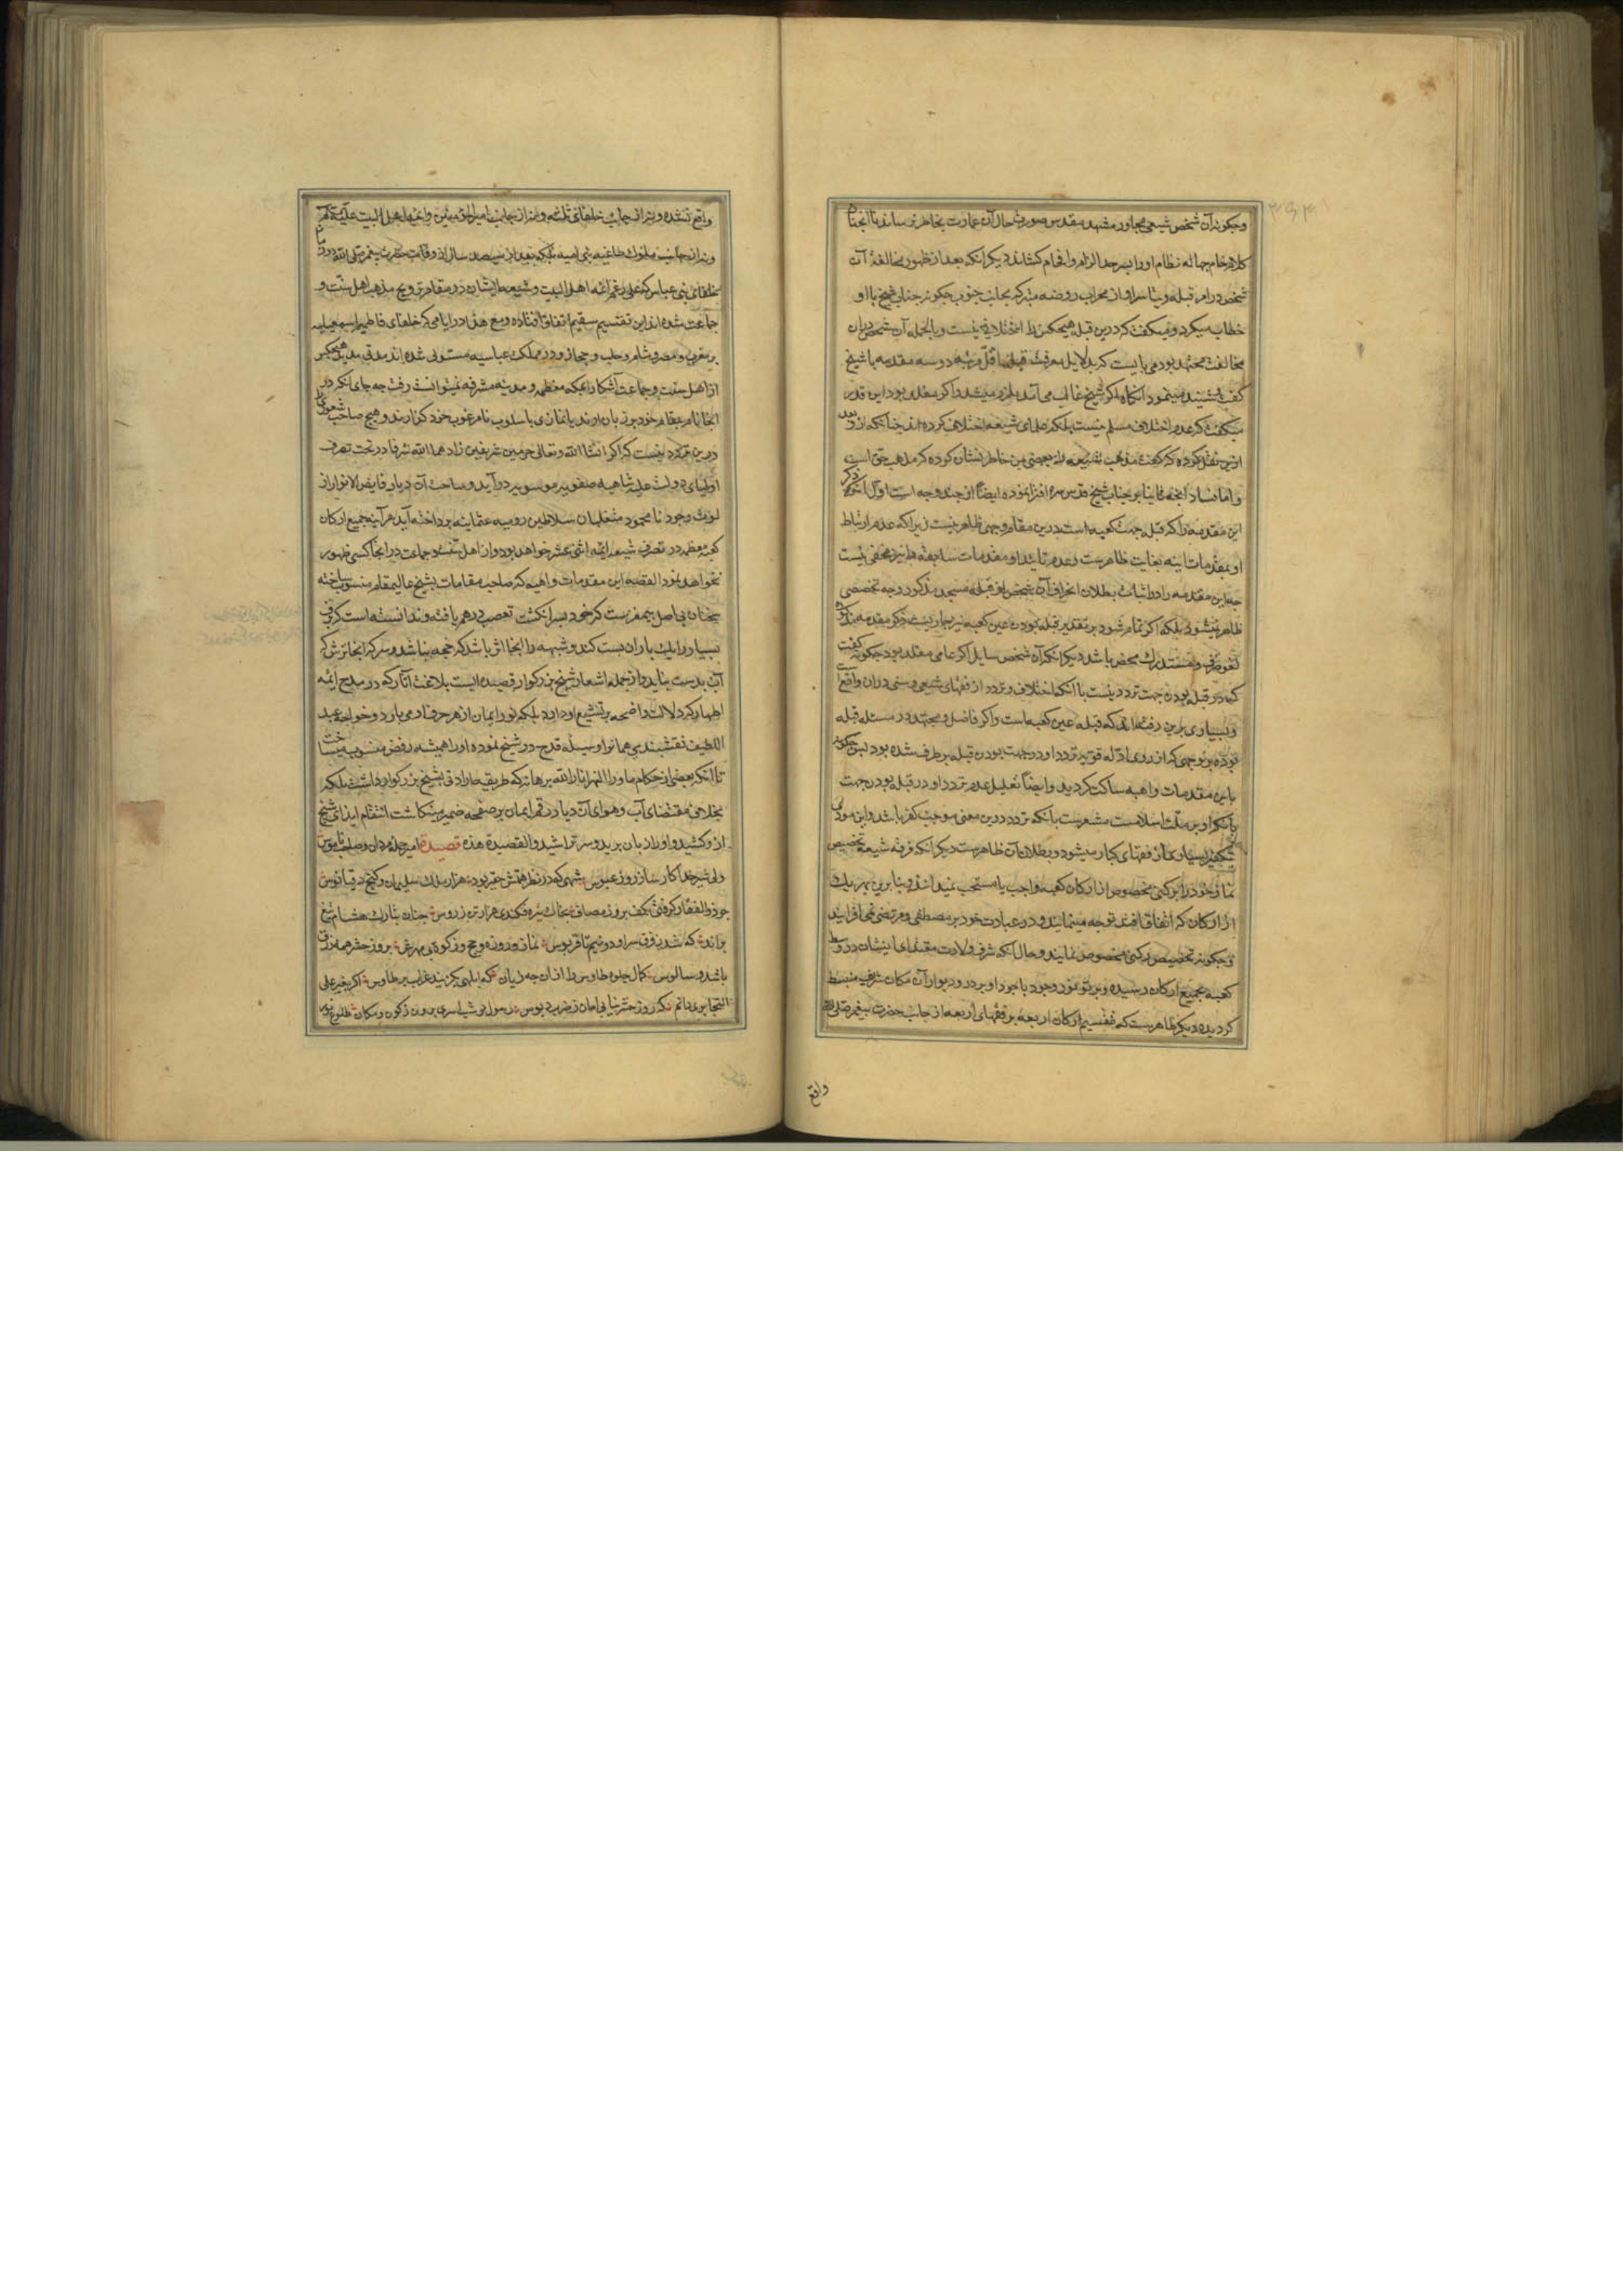 وچگونه آن شخص شیعی مجاور مشهد مقدس صورت حال آن عمارت بخاطر نرساند تا آنجناب
کلام خام جهاله نظام او را بسرحد الزام و افحام کشاند دیگر آنکه بعد از ظهور مخالفة آن
شخص در امر قبله و تیاسر او از محراب روضه متبرکه بجانب جنوب چگونه جناب شیخ با او
خطاب میکرد و میگفت که درین قبله هیچکس را اختلافی نیست و بالجمله آن شخص در آن
مخالفت مجتهد بود می بایست که بدلایل معرفت قبله اقل مرتبه دو سه مقدمه با شیخ
گفت و شنید مینمود آنگاه اگر شیخ غالب می آمد ملزم میشد و اگر مقلد بود این قدر
میگفت که عدم اختلاف مسلم نیست بلکه علمای شیعه اختلاف کرده اند چنانکه او بعد
ازین نقل کرده که گفت مذهب شیعه را بعضی من خاطر نشان کرده که مذهب حق است
و اما فساد آنچه ثانیا بر جناب شیخ قدس سره افترا نموده ایضا از چند وجه است اول آنکه ذکر
این مقدمه را که قبله جهت کعبه است درین مقام وجهی ظاهر نیست زیرا که عدم ارتباط
او بمقدمات ثابته بغایت ظاهرست و عدم تایید او مقدمات سابقه را نیز مخفی نیست
چه این مقدمه را در اثبات بطلان انحراف آن شخص از قبله مسجد مذکور وجه تخصصی
ظاهر نمیشود بلکه اگر تمام شود بر تقدیر قبله بودن عین کعبه نیز جاریست و ذکر مقدمه مذکوره
لغو صرف و مستدرک محض باشد دیگر آنکه آن شخص سایل اگر عامی مقلد بود چگونه گفت
که در قبله بودن جهت تردد نیست با آنکه اختلاف و تردد از فقهای شیعی و سنی در آن واقع است
و بسیاری برین رفته اند که قبله عین کعبه است و اگر فاضل و مجتهد در مسئله قبله
بوده بر وجهی که از روی ادله قویه تردد او در جهت بودن قبله بر طرف شده بود پس چگونه
باین مقدمات واهیه ساکت گردید و ایضا تعلیل عدم تردد او در قبله بودن جهت
بآنکه او بر ملت اسلامست مشعرست بآنکه تردد درین معنی موجب کفر باشد و این مودی
بتکفیر بسیاری از فقهای کبار میشود و بطلان آن ظاهرست دیگر آنکه فرقه شیعه تخصیص
نماز خود را برکنی مخصوص از ارکان کعبه واجب یا مستحب نمیدانند و بنابرین بهر یک
از ارکان که اتفاق افتد توجه مینمایند و در عبادت خود بر مصطفی و مرتضی نمی افزایند
و چگونه تخصیص رکنی مخصوص نمایند و حال آنکه شرف ولادت مقتدای ایشان در وسط
کعبه بجمیع ارکان رسیده و پرتو نور وجود باجود او بر در و دیوار آن مکان شریف منبسط
گردیده دیگر ظاهرست که تقسیم ارکان اربعه بر فقهای اربعه از جانب حضرت پیغمبر صلی الله
واقع
واقع نشده و نیز از جانب خلفای ثلثه و نیز از جانب امیر المؤمنین و ائمه اهل البیت علیهم السلم
و نیز از جانب ملوک طاغیه بنی امیه بلکه بعد از سیصد سال از وفات حضرت پیغمبر صلی الله در زمان
خلفای بنی عباس که علی رغم ائمه اهل البیت و شیعه ایشان در مقام ترویج مذهب اهل سنت و
جماعت شده اند این تقسیم سقیم اتفاق افتاده و مع هذا در ایامی که خلفای فاطمیه اسمعیلیه
بر مغرب و مصر و شام و حلب و حجاز و در مملکت عباسیه مستولی شده اند مدتی مدید هیچکس
از اهل سنت و جماعت آشکارا بمکه معظمه و مدینه مشرفه نمیتوانست رفت چه جای آنکه در
آنجا نام مقام خود بر زبان آرند یا نمازی باسلوب نامرغوب خود گزارند و هیچ صاحب شعوری را
درین تردد نیست که اگر انشا الله تعالی حرمین شریفین زادهما الله شرفا در تحت تصرف
اولیای دولت علیه شاهیه صفویه موسویه در آید و ساحت آن دیار فایض الانوار از
لوث وجود نامحمود متغلبان سلاطین رومیه عثمانیه پرداخته آید هر آینه جمیع ارکان
کعبه معظمه در تصرف شیعه ائمه اثنی عشر خواهد بود و از اهل تسنن و جماعت در آنجا کسی ظهور
نخواهد نمود القصه این مقدمات واهیه که صاحب مقامات بشیخ عالیمقام منسوب ساخته
سخنان بی اصل بیمغزست که خود بسر انگشت تعصب درهم بافته و ندانسته است که برف
بسیار را یک باران بست کند و شبهه را آنجا اثر باشد که حجه نباشد و سرکه آنجا ترش که
آب بدست نیاید و از جمله اشعار شیخ بزرگوار قصیده ایست بلاغت آثار که در مدح ائمه
اطهار کرده دلالت واضحه بر تشیع او دارد بلکه نور ایمان از هر حرف او می بارد و خواجه عبد
اللطیف نقشبندی همانرا وسیله قدح در شیخ نموده او را همیشه رفض منسوب میساخت
تا آنکه بعضی از حکام ماوراالنهر انار الله برهانه که طریقه صادق بشیخ بزرگوار داشت بلکه
بخلاف مقتضای آب و هوای آن دیار رقم ایمان بر صفحه ضمیر مینگاشت انتقام ایذای شیخ
ازو کشید و او را زبان برید و سر تراشید و القصیدة هذه قصیدة امیر جمله مردان و صلب ناموس
ولی شیر خدا کارساز روز عبوس شهی که در نظر همتش حقیر بود هزار ملک سلیمان و گنج دقیانوس
چو ذوالفقار گرفتی بکف بروز مصاف بخاک تیره فکندی هزار تن ز رؤس چنان بتارک هشام تیغ
براند که شد ز فرق سر او دو نیم تا قربوس نماز و روزه و حج و زکوة بی مهرش بروز حشر همه زرق
باشد و سالوس کمال جلوه طاوس را ازان چه زیان که ابلهی بگزیند غراب بر طاوس اگر بغیر علی
التجا بری دانم که روز حشر نیابی امان ز ضرب دبوس رسول بر شب اسری برون ز کون و مکان طلوع نور